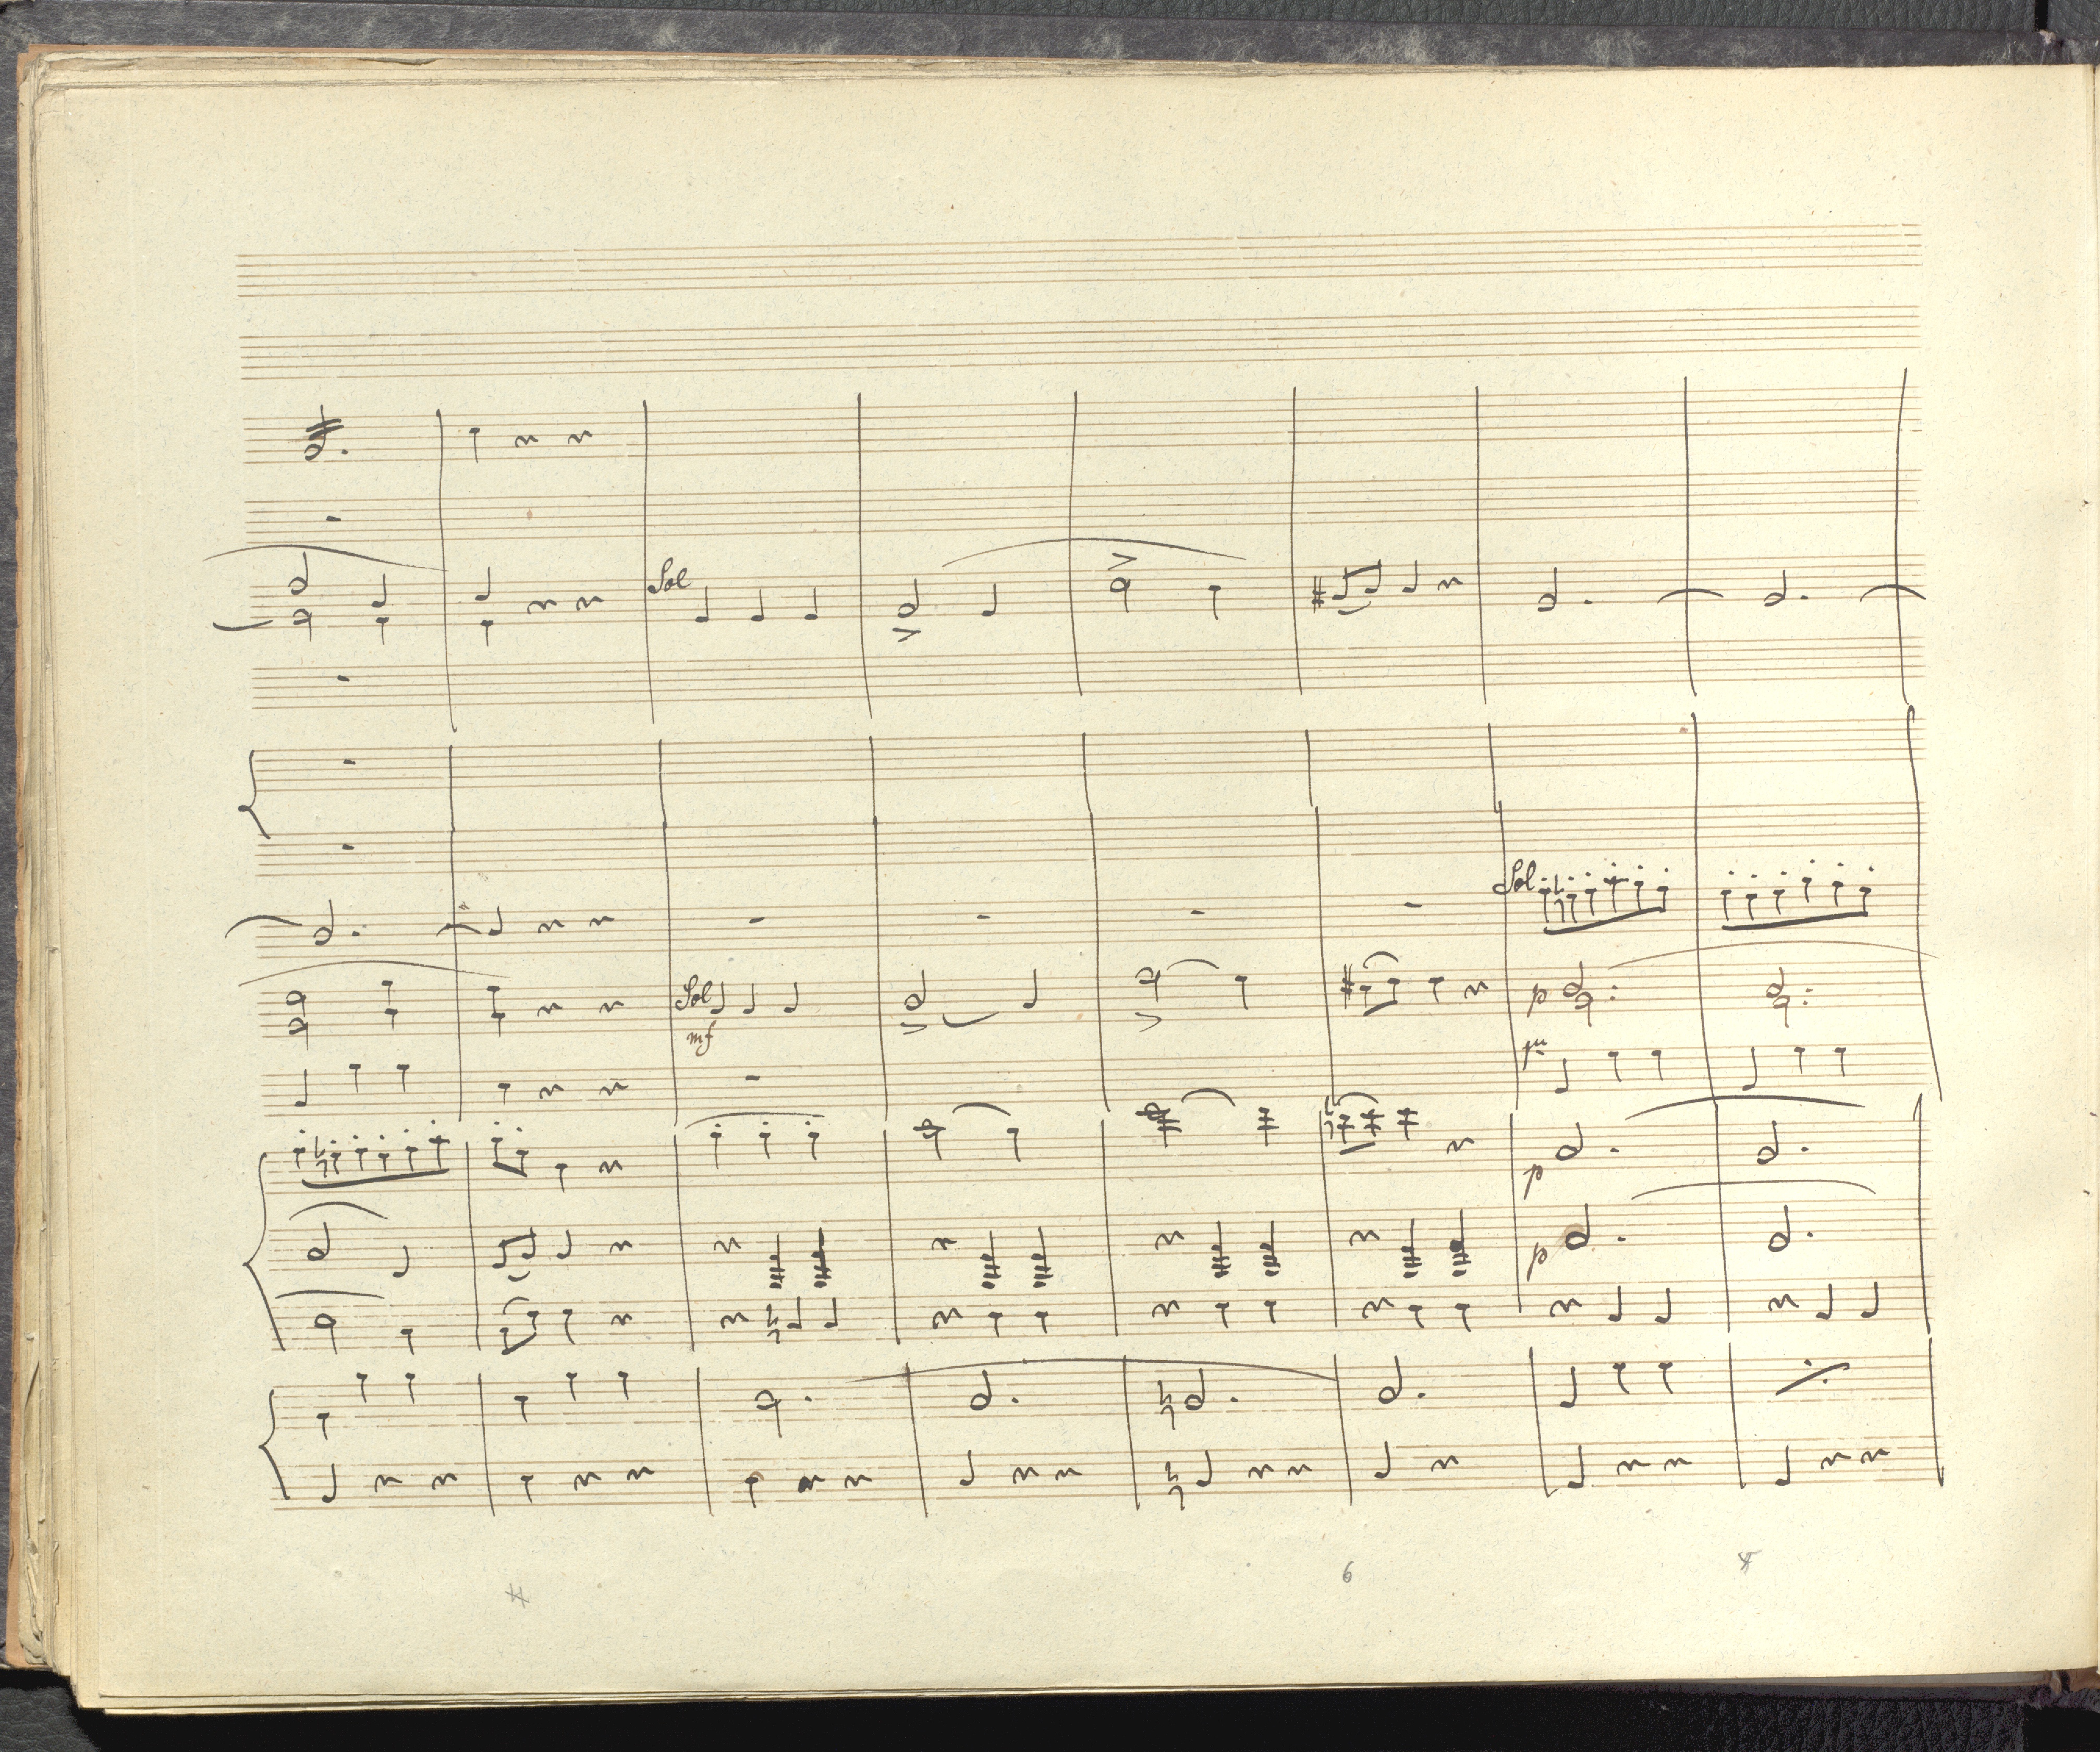 Sol
Sol
Sol
mf
p
p
p
6